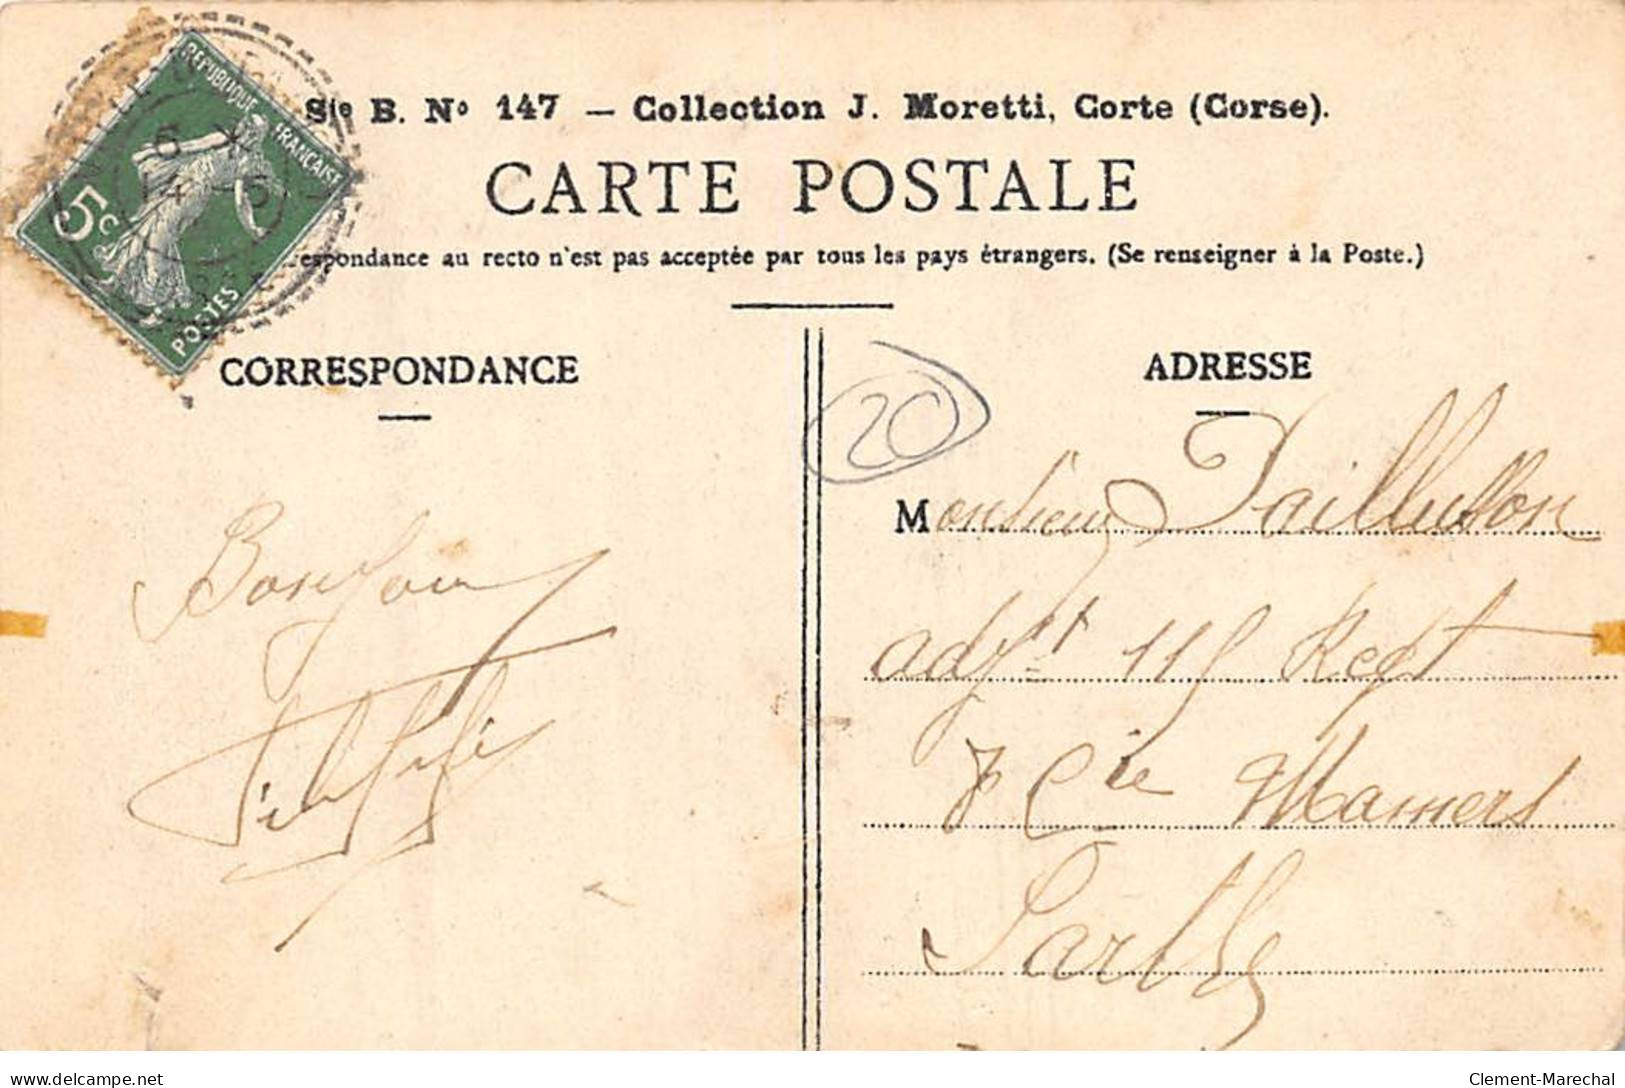 RÉPUBLIQUE FRANÇAISE
5c
POSTES
Sie B. No 147 — Collection J. Moretti, Corte (Corse).
CARTE POSTALE
respondance au recto n'est pas acceptée par tous les pays étrangers. (Se renseigner à la Poste.)
CORRESPONDANCE
ADRESSE
20
Monsieur
adjt 115 Regt
7 Cie Mamers
Sarthe
Bonjour
delcampe.net
Clement-Marechal